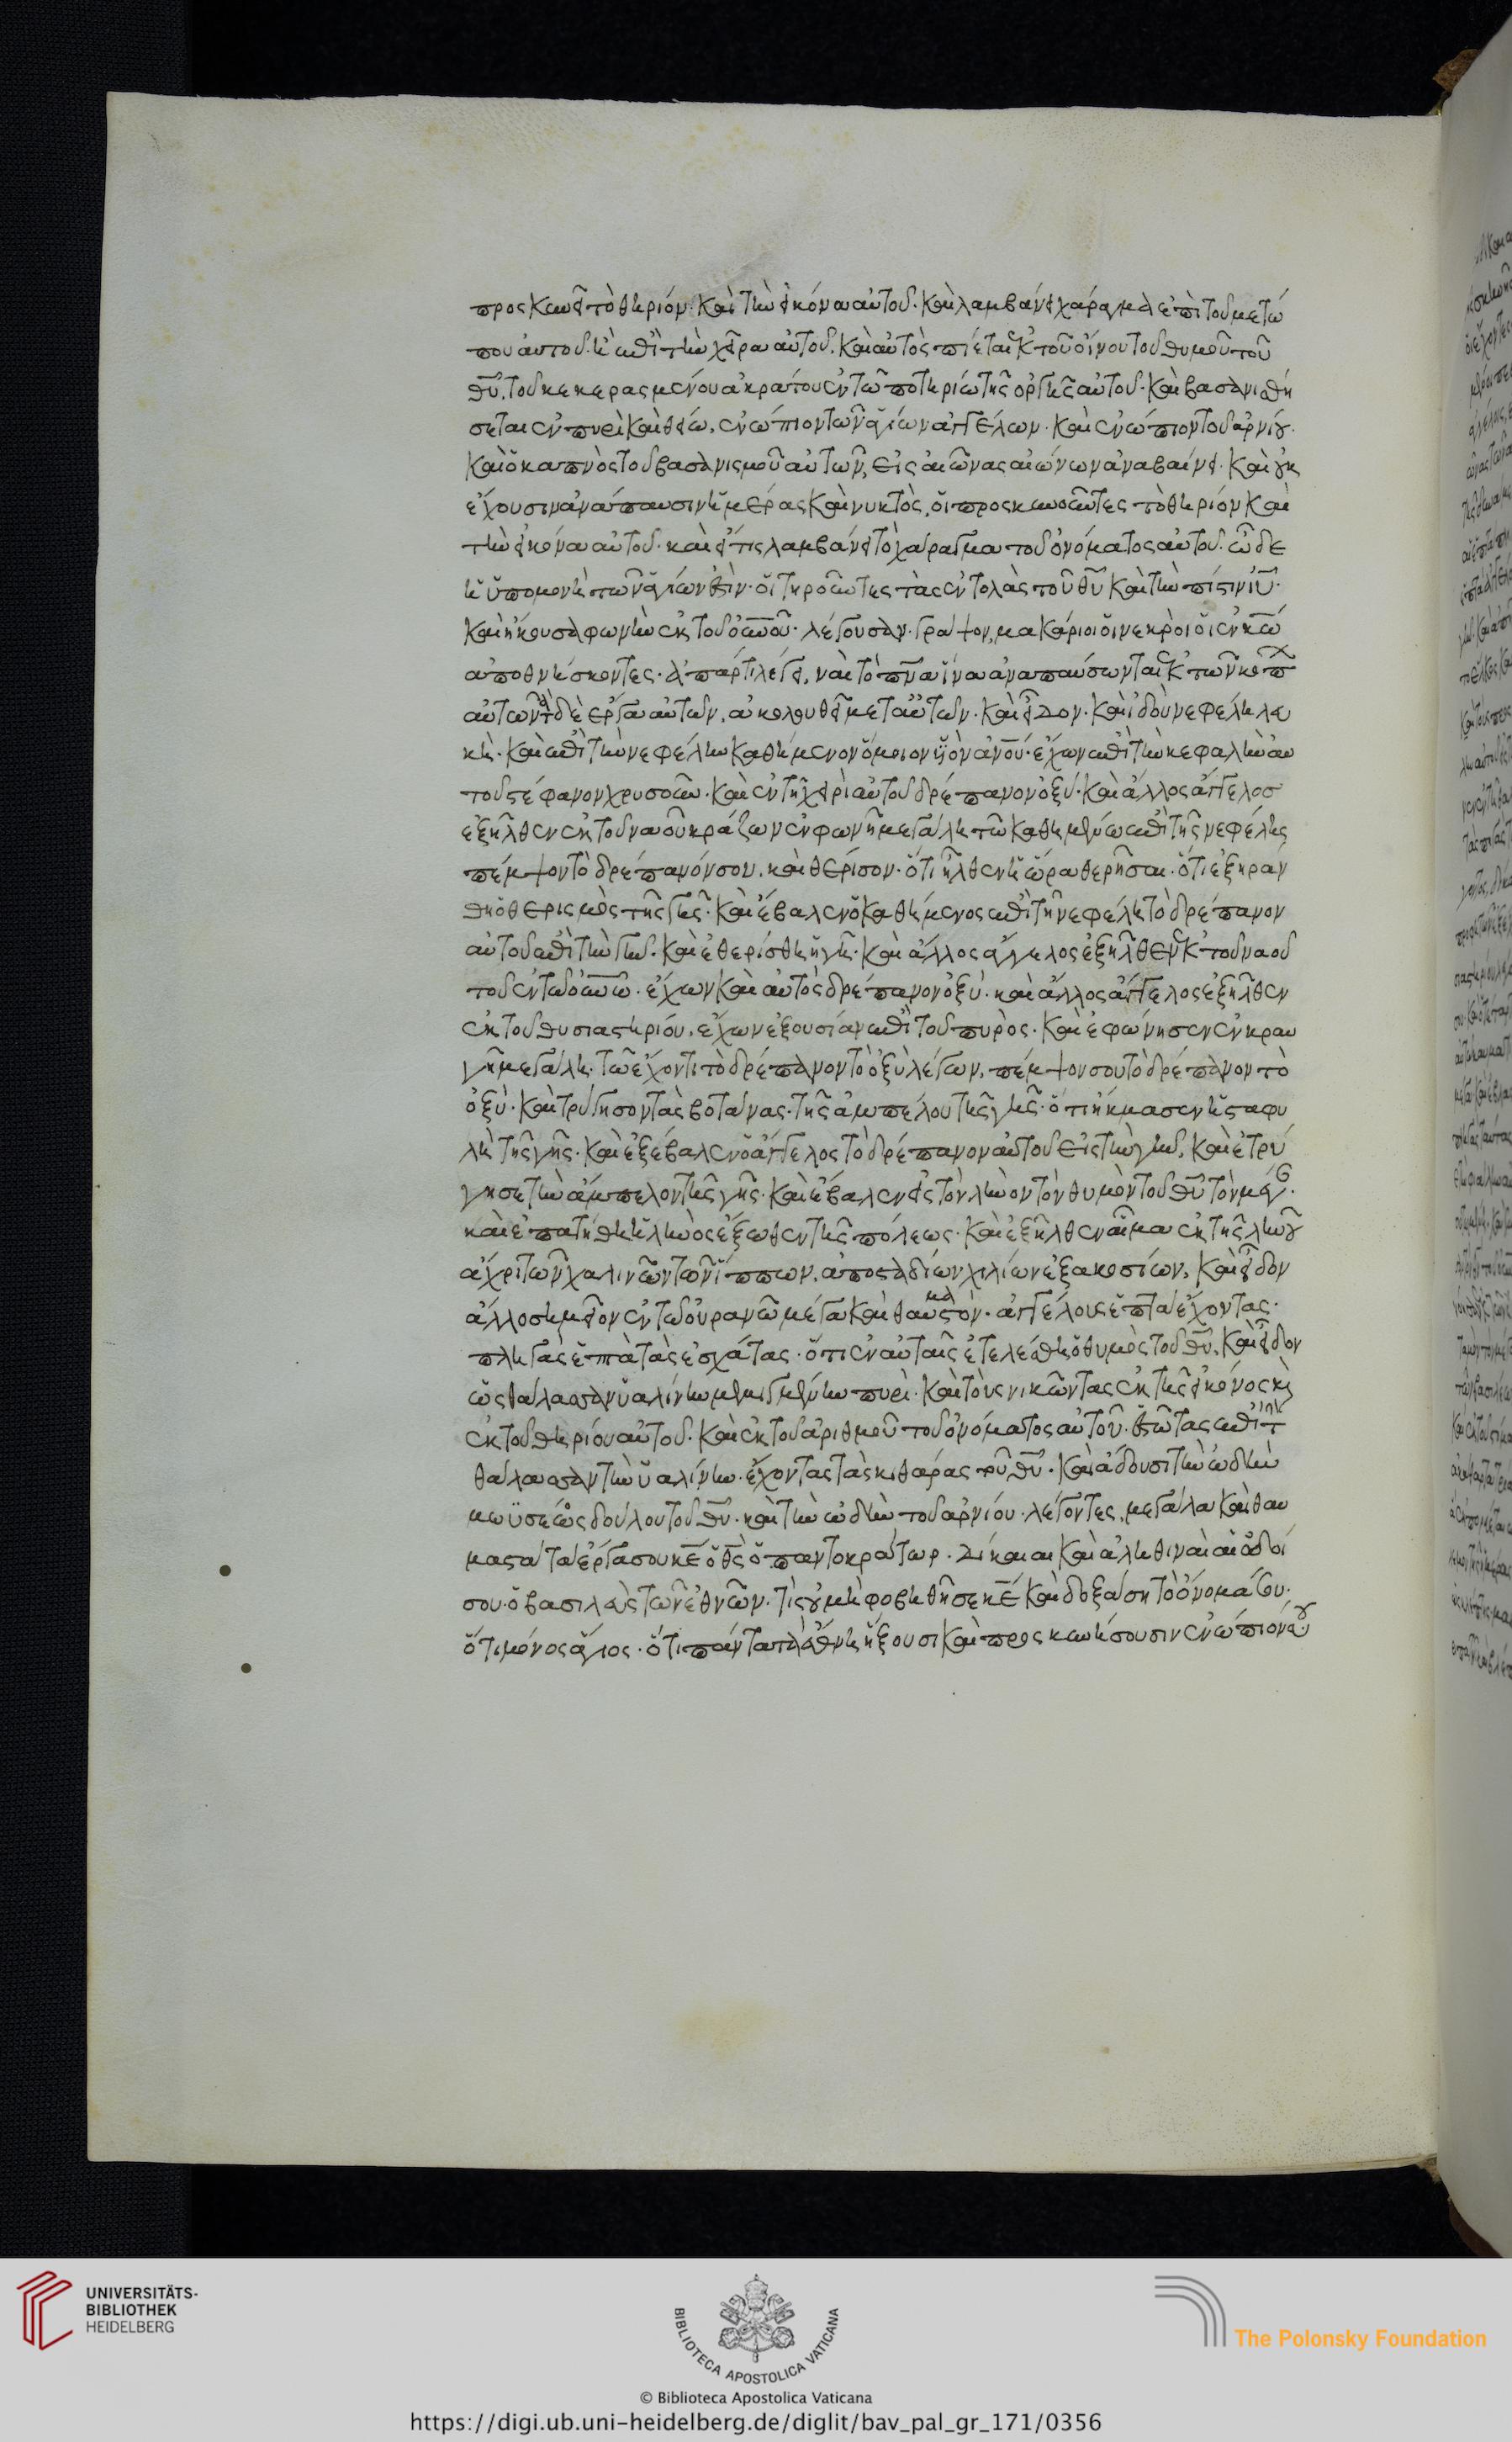 προσκυνεῖ τὸ θηριόν· καὶ τὴν εἰκόνα αὐτοῦ· καὶ λαμβάνει χάραγμα ἐπὶ τοῦ μετώ
που αὐτοῦ· ἢ ἐπὶ τὴν χεῖρα αὐτοῦ, καὶ αὐτὸς πίεται ἐκ τοῦ οἴνου τοῦ θυμοῦ τοῦ
θυ, τοῦ κεκερασμένου ἀκράτου ἐν τῶ ποτηρίω τῆς ὀργῆς αὐτοῦ· καὶ βασανισθή
σεται ἐν πυρὶ καὶ θείω, ἐνώπιον τῶν ἁγίων ἀγγέλων· καὶ ἐνώπιον τοῦ ἀρνίου·
καὶ ὁ καπνὸς τοῦ βασανισμοῦ αὐτῶν, εἰς αἰῶνας αἰώνων ἀναβαίνει· καὶ οὐκ
ἔχουσιν ἀνάπαυσιν ἡμέρας καὶ νυκτὸς, οἱ προσκυνοῦντες τὸ θηριόν καὶ
τὴν εἰκόνα αὐτοῦ· καὶ εἴ τις λαμβάνει τὸ χάραγμα τοῦ ὀνόματος αὐτοῦ· ὧδε
ἡ ὑπομονὴ τῶν ἁγίων ἐστὶν· οἱ τηροῦντες τὰς ἐντολὰς τοῦ θυ καὶ τὴν πίστιν ιυ·
καὶ ἤκουσα φωνὴν ἐκ τοῦ οὐνου· λέγουσαν· γράψον, μακάριοι οἱ νεκροὶ οἱ ἐν κω
ἀποθνήσκοντες· ἀπάρτι λέγει, ναὶ τὸ πνα ἵνα ἀναπαύσωνται ἐκ τῶν κοπ
αὐτῶν τὰ δὲ ἔργα αὐτῶν, ἀκολουθεῖ μετ αὐτῶν· καὶ εἶδον· καὶ ἰδοὺ νεφέλη λευ
κὴ· καὶ ἐπὶ τὴν νεφέλην καθήμενον ὅμοιον υἱὸν ἀνου· ἔχων ἐπὶ τὴν κεφαλὴν αὐ
τοῦ στέφανον χρυσοῦν· καὶ ἐν τῆ χειρὶ αὐτοῦ δρέπανον ὀξύ· καὶ ἄλλος ἄγγελοσ
ἐξῆλθεν ἐκ τοῦ ναοῦ κράζων ἐν φωνῆ μεγάλη τῶ καθημένω ἐπὶ τῆς νεφέλης
πέμψον τὸ δρέπανόν σου, καὶ θέρισον· ὅτι ἦλθεν ἡ ὥρα θερῆσαι· ὅτι ἐξηράν
θη ὁ θερισμὸς τῆς γῆς· καὶ ἔβαλεν ὁ καθήμενος ἐπὶ τῆ νεφέλη τὸ δρέπανον
αὐτοῦ ἐπὶ τὴν γῆν· καὶ ἐθερίσθη ἡ γῆ· καὶ ἄλλος ἄγγελος ἐξῆλθεν ἐκ τοῦ ναοῦ
τοῦ ἐν τῶ οὐνω· ἔχων καὶ αὐτὸς δρέπανον ὀξὺ· καὶ ἄλλος ἄγγελος ἐξῆλθεν
ἐκ τοῦ θυσιαστηρίου, ἔχων ἐξουσίαν ἐπὶ τοῦ πυρὸς· καὶ ἐφώνησεν ἐν κραυ
γῆ μεγάλη· τῶ ἔχοντι τὸ δρέπανον τὸ ὀξὺ λέγων, πέμψον σου τὸ δρέπανον τὸ
ὀξὺ· καὶ τρύγησον τὰς βοτάνας· τῆς ἀμπέλου τῆς γῆς· ὅτι ἤκμασεν ἡ σταφυ
λὴ τῆς γῆς· καὶ ἐξέβαλεν ὁ ἄγγελος τὸ δρέπανον αὐτοῦ εἰς τὴν γῆν, καὶ ἐτρύ
γησε τὴν ἄμπελον τῆς γῆς· καὶ ἔβαλεν εἰς τὸν ληνον τὸν θυμὸν τοῦ θυ τὸν μέγ·
καὶ ἐπατήθη ἡ ληνὸς ἔξωθεν τῆς πόλεως· καὶ ἐξῆλθεν αἷμα ἐκ τῆς ληνοῦ
ἄχρι τῶν χαλινῶν τῶν ἵππων, ἀπὸ σταδίων χιλίων ἑξακοσίων, καὶ εἶδον
ἄλλο σημεῖον ἐν τῶ οὐρανῶ μέγα καὶ θαυμαστόν· ἀγγέλους ἑπτὰ ἔχοντας·
πληγὰς ἑπτὰ τὰς ἐσχάτας· ὅτι ἐν αὐταῖς ἐτελέσθη ὁ θυμὸς τοῦ θυ, καὶ εἶδον
ὡς θάλασσαν ὑαλίνην μεμιγμένην πυρὶ· καὶ τοὺς νικῶντας ἐκ τῆς εἰκόνος κὶ
ἐκ τοῦ θηρίου αὐτοῦ· καὶ ἐκ τοῦ ἀριθμοῦ τοῦ ὀνόματος αὐτοῦ· ἑστῶτας ἐπὶ τὴν
θάλασσαν τὴν ὑαλίνην· ἔχοντας τὰς κιθάρας τοῦ θυ· καὶ ἄδουσι τὴν ὠδὴν
μωϋσέως δούλου τοῦ θυ· καὶ τὴν ὠδὴν τοῦ ἀρνίου· λέγοντες, μεγάλα καὶ θαυ
μαστὰ τὰ ἔργα σου κε ὁ θς ὁ παντοκράτωρ· δίκαιαι καὶ ἀληθιναὶ αἱ ὁδοί
σου· ὁ βασιλεὺς τῶν ἐθνῶν· τίς οὐ μὴ φοβηθῆ σε κε καὶ δοξάση τὸ ὄνομά σου·
ὅτι μόνος ἅγιος· ὅτι πάντα τὰ ἔθνη ἥξουσι καὶ προσκυνήσουσιν ἐνώπιόν σου
UNIVERSITÄTS-
BIBLIOTHEK
HEIDELBERG
BIBLIOTECA APOSTOLICA VATICANA
The Polonsky Foundation
© Biblioteca Apostolica Vaticana
https://digi.ub.uni-heidelberg.de/diglit/bav_pal_gr_171/0356